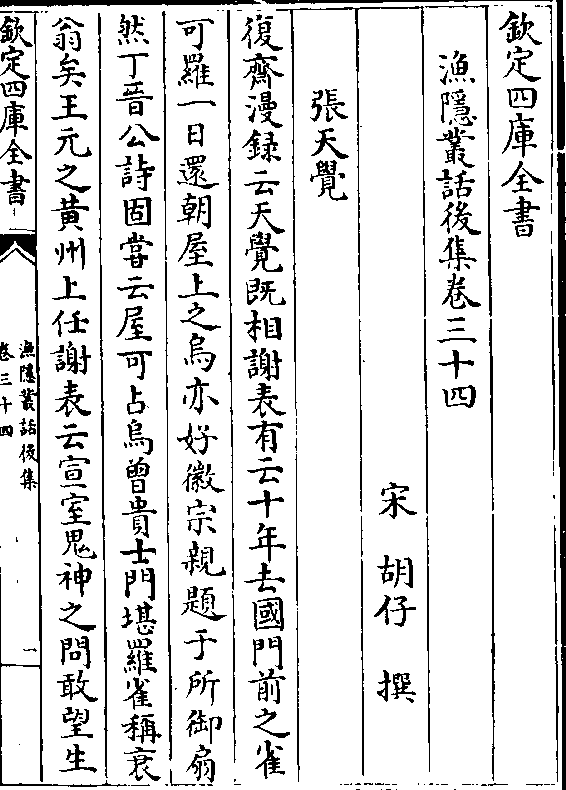 欽定四庫全書
漁隱叢話後集卷三十四
宋 胡仔 撰
張天覺
復齋漫録云天覺既相謝表有云十年去國門前之雀
可羅一日還朝屋上之烏亦好徽宗親題于所御扇
然丁晉公詩固嘗云屋可占烏曾貴士門堪羅雀稱衰
翁矣王元之黄州上任謝表云宣室鬼神之問敢望生
欽定四庫全書
漁隱叢話後集
卷三十四
一